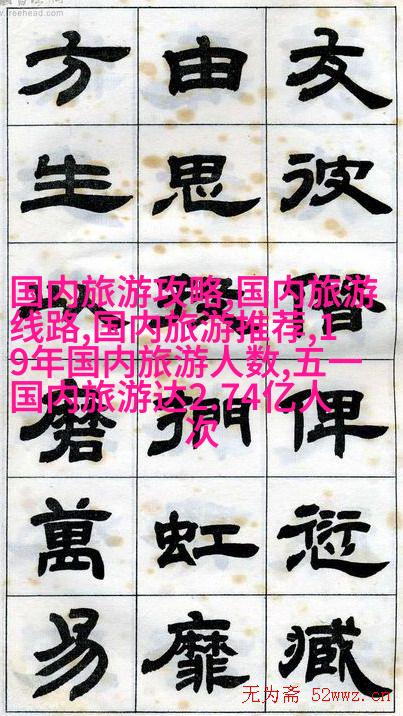 freehead.com
方 由 友
生 思 彼
国内旅游攻略,国内旅游
线路,国内旅游推荐,1
9年国内旅游人数,五一
国内旅游达2.74亿人
次
磨 俾
萬 虹 愆
易 靡 臧
无为斋 52wwz.cn